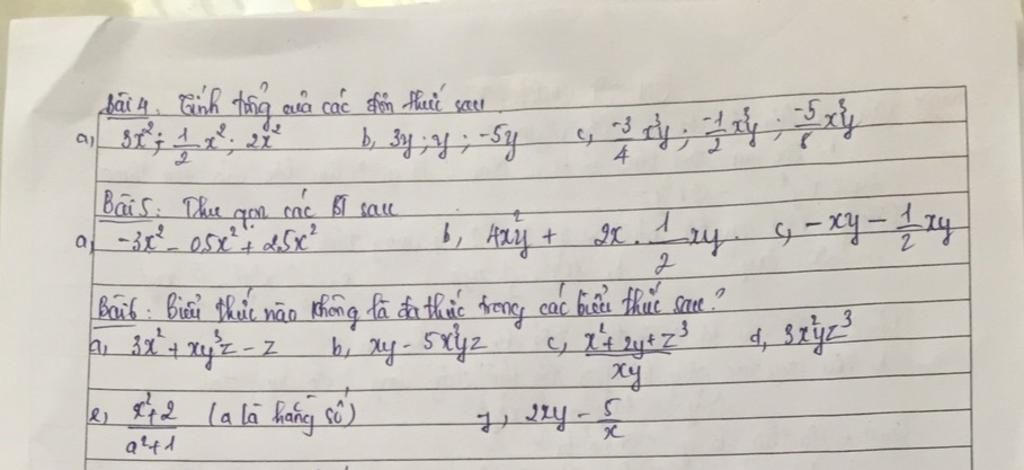 Bài 4. Tính tổng của các đơn thức sau
a, 3x²; 1/2 x²; 2x² b, 3y; y; -5y c, -3/4 x³y; -1/2 x³y; -5/8 x³y
Bài 5: Thu gọn các BT sau
a, -3x² - 0,5x² + 2,5x² b, 4x²y + 2x. 1/2 xy. c, -xy - 1/2 xy
Bài 6: Biểu thức nào không là đa thức trong các biểu thức sau?
a, 3x² + xy³z - z b, xy - 5x³yz c, (x² + 2y + z³)/xy d, 3x²yz³
e, (x²+2)/(a²+1) (a là hằng số) 2xy - 5/x